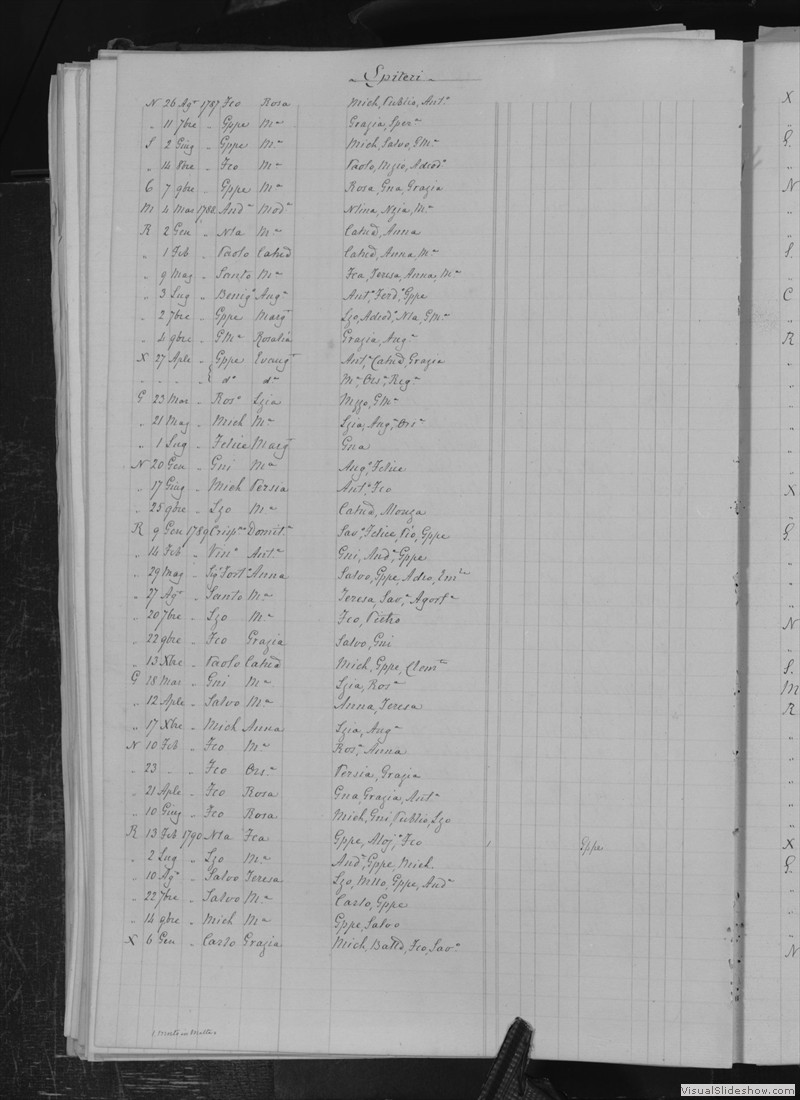 Spiteri
N 26 Agº 1787 Fco Rosa Mich, Publio, Antº
" 11 7bre " Gppe Mª Grazia, Sperª
S 2 Giug " Gppe Mª Mich, Salvo, GMª
" 14 8bre " Fco Mª Paolo, Mzio, Adeodº
C 7 9bre " Gppe Mª Rosa, Gna, Grazia
M 4 Mar 1788 Andª Modª Ntina, Ngia, Mª
R 2 Gen " Nla Mª Catnd, Anna
" 1 Feb " Paolo Catnd Catnd, Anna, Mª
" 9 Mag " Santo Mª Fca, Teresa, Anna, Mª
" 3 Lug " Benigº Angª Antº, Ferdº, Gppe
" 2 7bre " Gppe Margª Lzo, Adeodº, Nla, GMª
" 4 9bre " GMª Rosalia Grazia, Angª
X 27 Aple " Gppe Evangª Antª, Catnd, Grazia
" " " " dº dª Mª, Orsª, Regª
G 23 Mar " Rosº Lzia Mzzo, GMª
" 21 Mag " Mich Mª Lzia, Angª, Orsª
" 1 Lug " Felice Margª Gna
N 20 Gen " Gni Mª Angº, Felice
" 17 Giug " Mich Persia Antº, Fco
" 25 9bre " Lzo Mª Catnd, Monza
R 9 Gen 1789 Crispº Domitª Savº, Felice, Pio, Gppe
" 14 Feb " Vinº Antª Gni, Andª, Gppe
" 29 Mag " Sigr Fortº Anna Salvo, Gppe, Adeo, Emle
" 27 Agº " Santo Mª Teresa, Savª, Agostª
" 20 7bre " Lzo Mª Fco, Pietro
" 22 9bre " Fco Grazia Salvo, Gni
" 13 Xbre " Paolo Catnd Mich, Gppe, Clemte
G 18 Mar " Gni Mª Lzia, Rosª
" 12 Aple " Salvo Mª Anna, Teresa
" 17 Xbre " Mich Anna Lzia, Angª
N 10 Feb " Fco Mª Rosª, Anna
" 23 " " Fco Orsª Persia, Grazia
" 21 Aple " Fco Rosa Gna, Grazia, Antª
" 10 Giug " Fco Rosa Mich, Gni, Publio, Lzo
R 13 Feb 1790 Nla Fca Gppe, Alojº, Fco 1 Gppe
" 2 Lug " Lzo Mª Andª, Gppe, Mich
" 10 Agº " Salvo Teresa Lzo, Mtto, Gppe, Andª
" 22 7bre " Salvo Mª Carlo, Gppe
" 14 9bre " Mich Mª Gppe, Salvo
X 6 Gen " Carlo Grazia Mich, Battª, Fco, Savº
X
"
G
"
N
"
"
S
"
C
"
R
X
G
N
"
S
M
R
X
G
N
VisualSlideshow.com